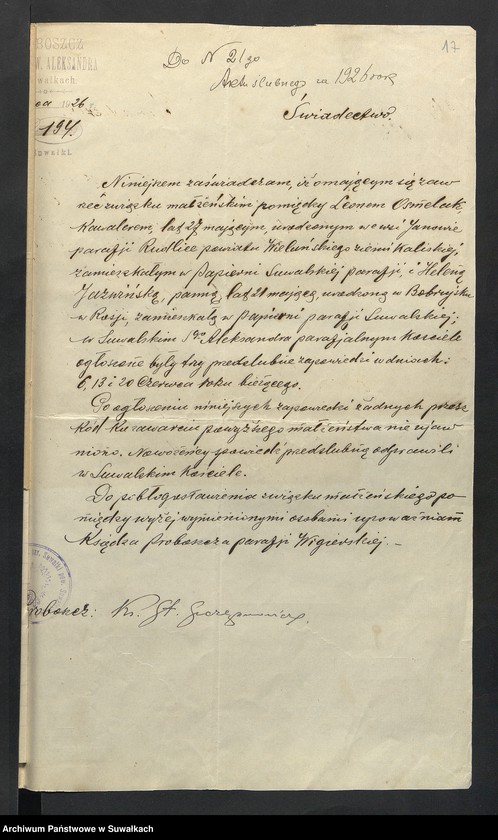 17
Do N 21go
Aktu ślubnego za 1926 rok
OSZCZ
W. ALEKSANDRA
wałkach.
1926
194.
uwałki.
Świadectwo.
Niniejszem zaświadczam, iż o mającym się zaw
rzeć związku małżeńskim pomiędzy Leonem
Kawalerem, lat 27 mającym, urodzonym we wsi Janowie
parafji Rudlice powiatu Wieluńskiego ziemi Kaliskiej,
zamieszkałym w Papierni Suwalskiej parafji, i Heleną
Jaźwińską, panną, lat 21 mającą, urodzoną w Bobrujsku
w Rosji, zamieszkałą w Papierni parafji Suwalskiej;
w Suwalskim Sgo Aleksandra parafjalnym Kościele
ogłoszone były trzy przedślubne zapowiedzi w dniach:
6, 13 i 20 Czerwca roku bieżącego.
Po ogłoszeniu niniejszych zapowiedzi żadnych przesz
kód ku zawarciu powyższego małżeństwa nie ujaw
niono. Nowożeńcy spowiedź przedślubną odprawili
w Suwalskim Kościele.
Do pobłogosławienia związku małżeńskiego po
między wyżej wymienionymi osobami upoważniam
Księdza Proboszcza parafji Wigierskiej.—
Proboszcz: Ks. St. Szczęsnowicz.
Archiwum Państwowe w Suwałkach